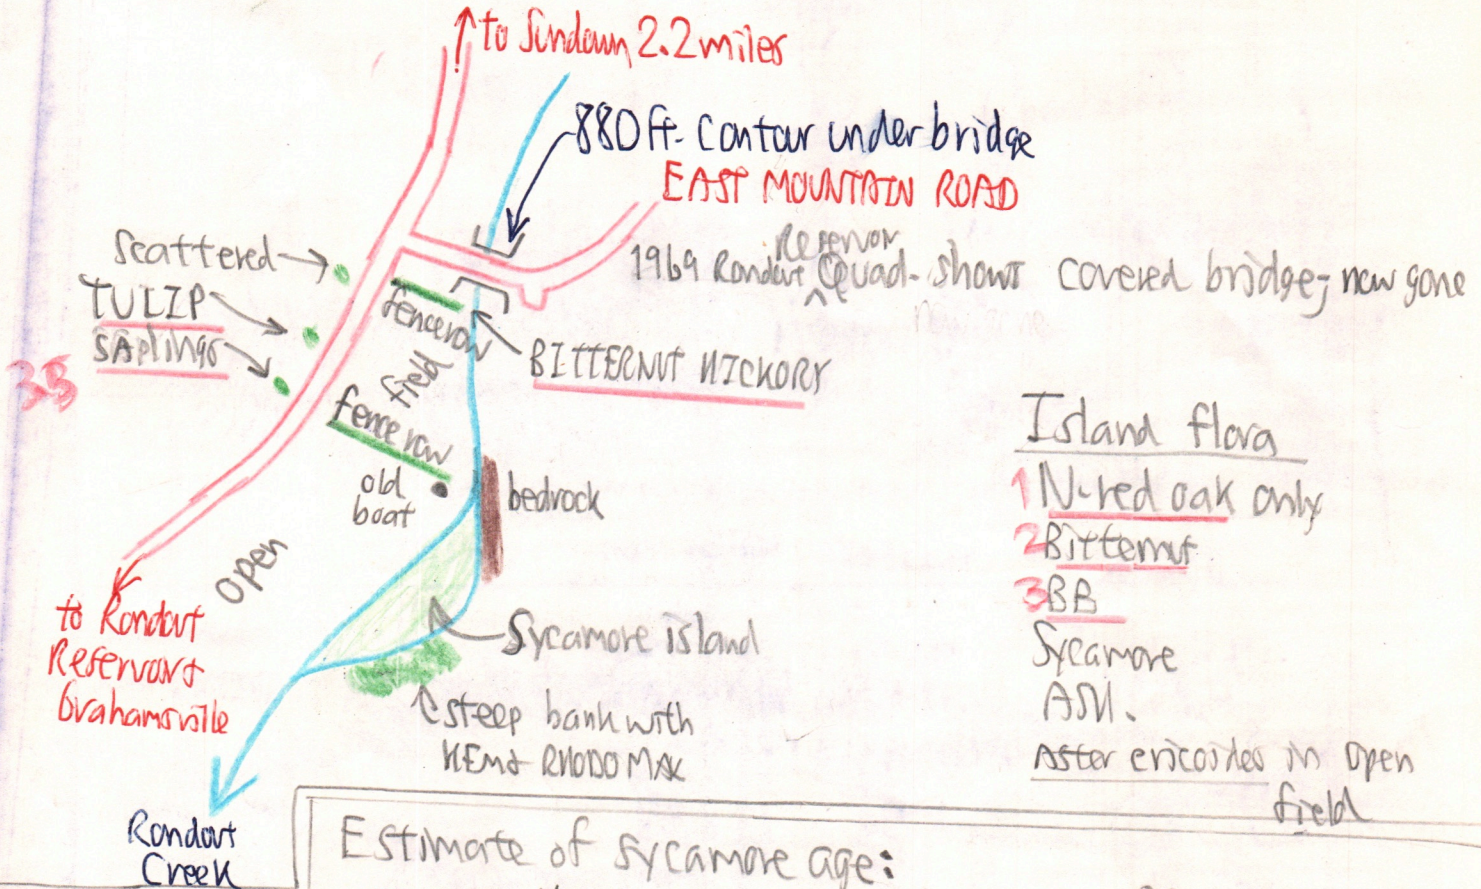 to Sundown 2.2 miles
880 ft. Contour under bridge
EAST MOUNTAIN ROAD
Reservoir
1969 Rondout ^ Quad. shows covered bridge; now gone
Scattered
TULIP
SAplings
3B
fencerow
field
fence row
BITTERNUT HICKORY
old
boat
bedrock
Open
to Rondout
Reservoir +
Grahamsville
Sycamore island
steep bank with
HEM + RHODO MAX
Rondout
Creek
Island flora
1 N. red oak only
2 Bitternut
3 BB
Sycamore
ASH.
Aster ericoides in open
field
Estimate of Sycamore age: